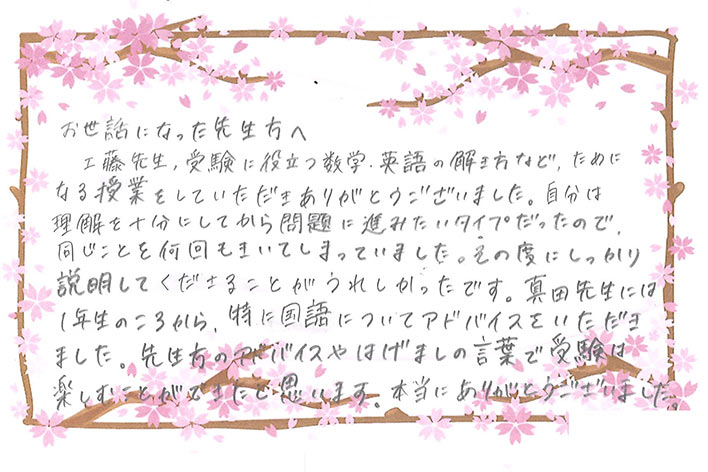 お世話になった先生方へ
工藤先生,受験に役立つ数学・英語の解き方など,ために
なる授業をしていただきありがとうございました。自分は
理解を十分にしてから問題に進みたいタイプだったので,
同じことを何回もきいてしまっていました。その度にしっかり
説明してくださることがうれしかったです。真田先生には
1年生のころから,特に国語についてアドバイスをいただき
ました。先生方のアドバイスやはげましの言葉で受験は
楽しむことができたと思います。本当にありがとうございました。